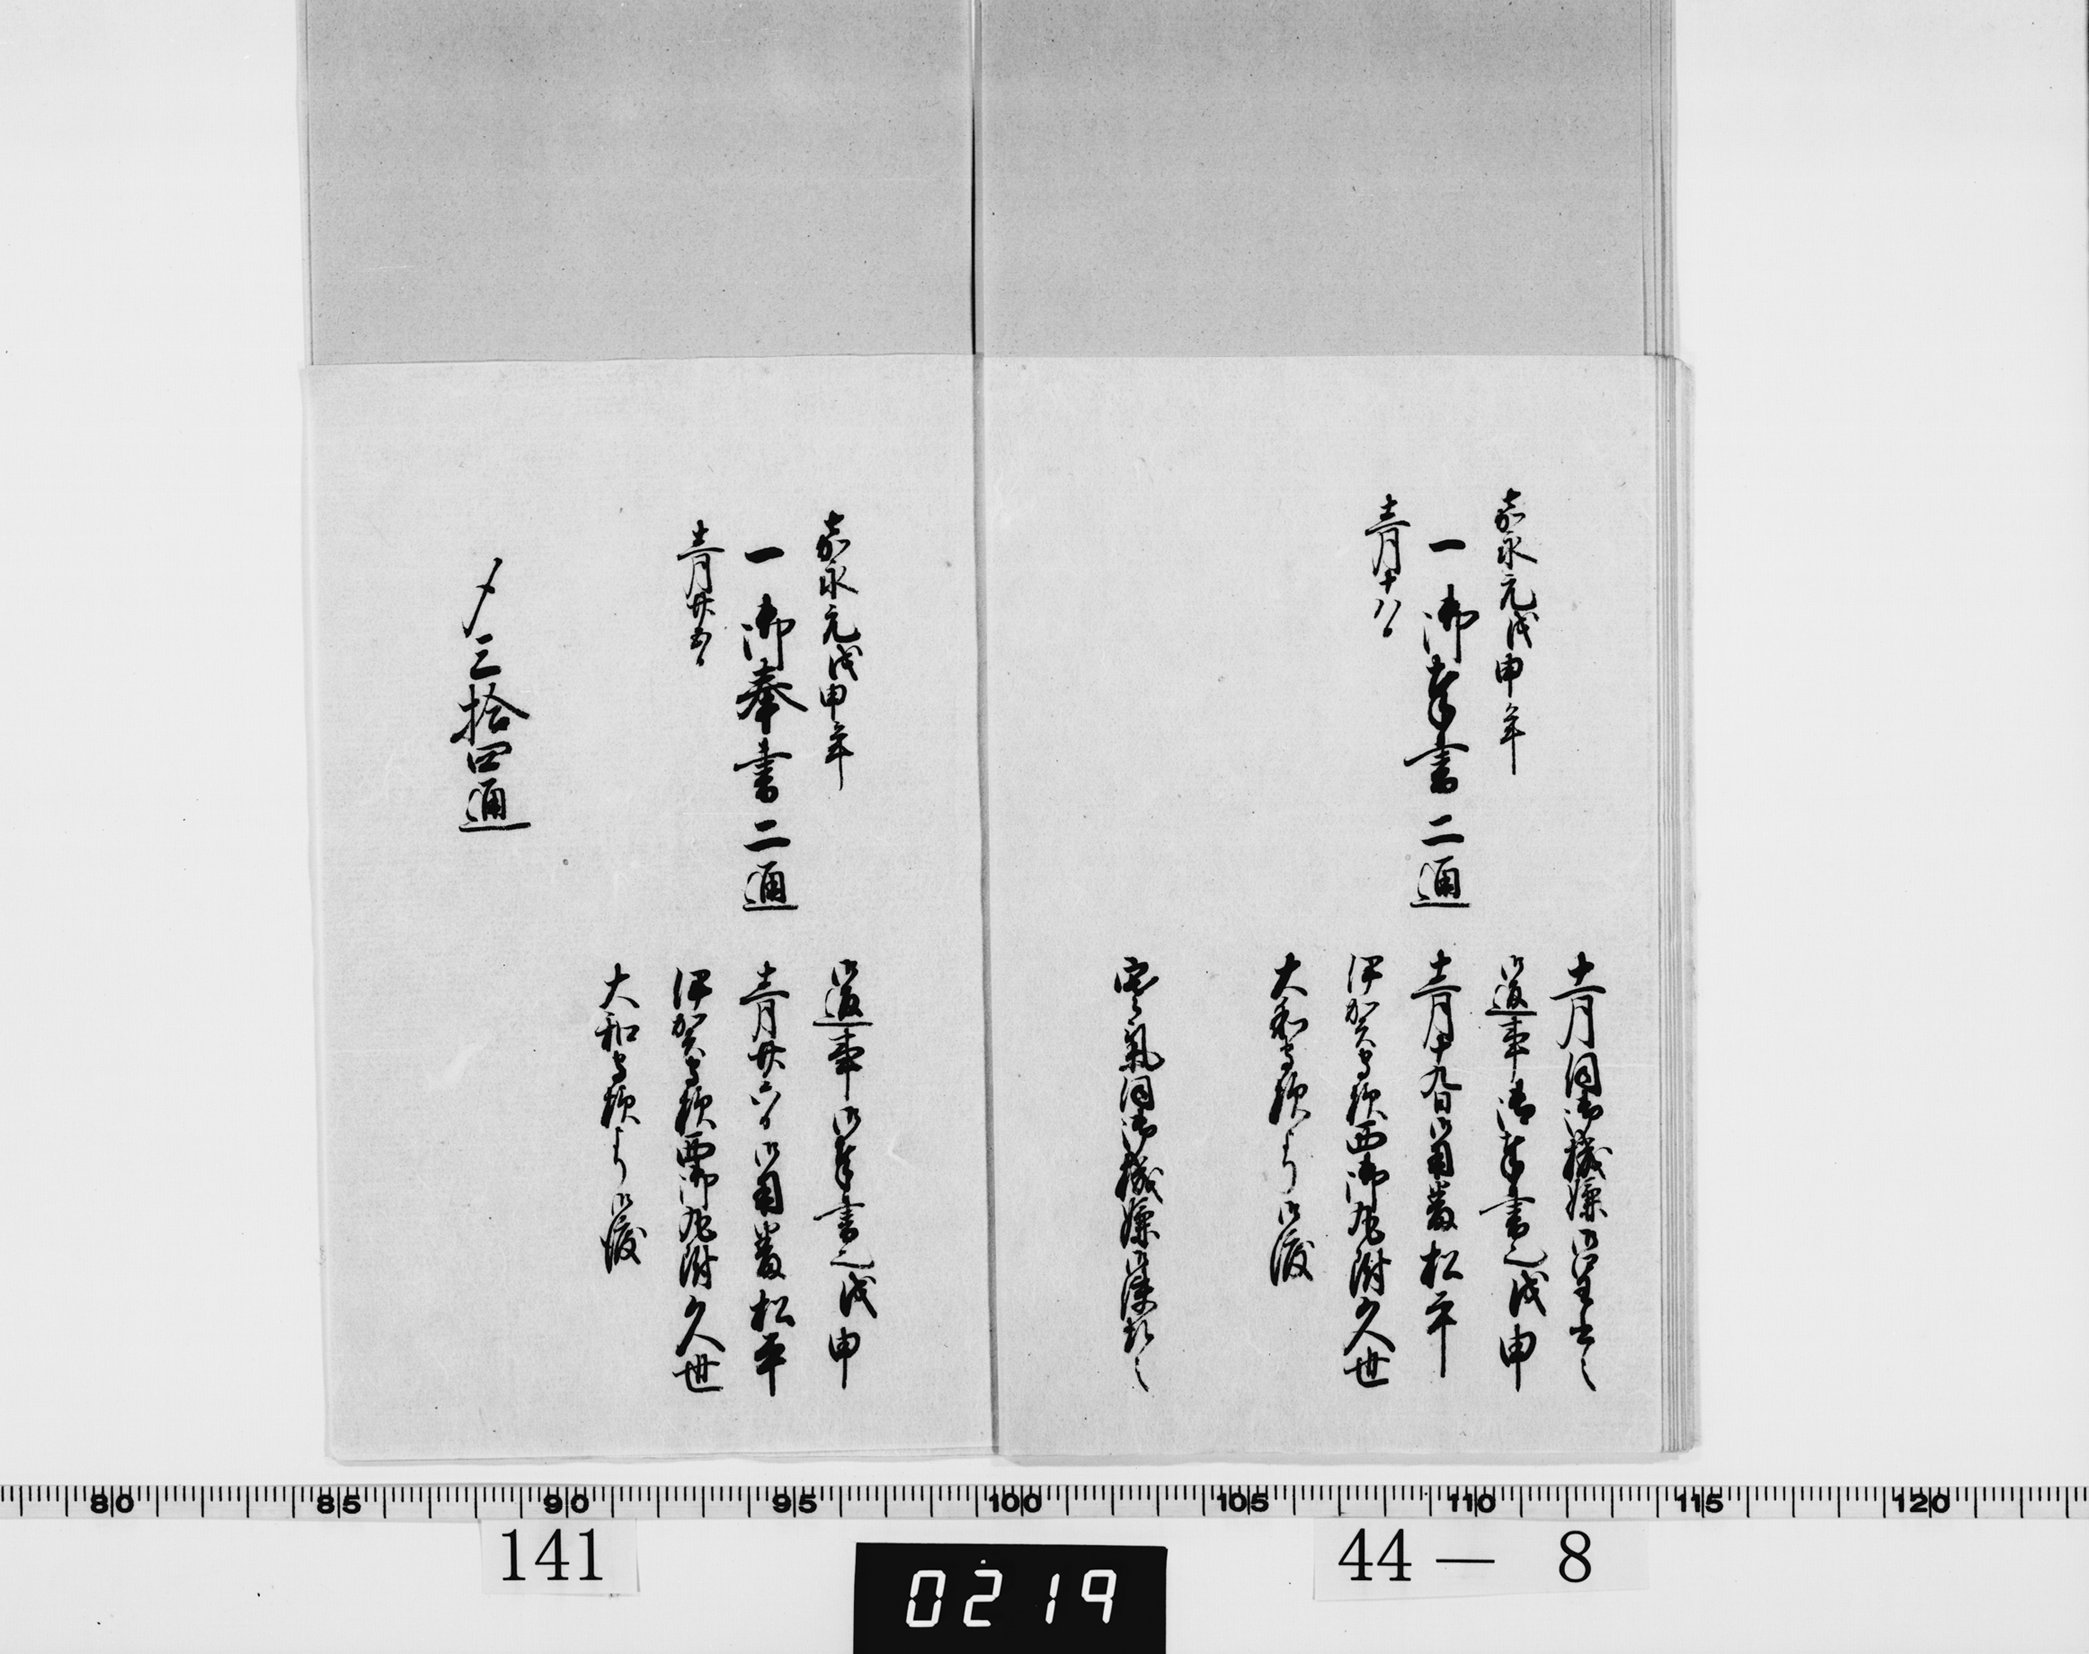 十一月伺御機嫌御呈書之
嘉永元戊申年
御返事御奉書也戊申
一御奉書二通
十二月十九日御用番松平
十二月十八日
伊賀守様西御丸附久世
大和守様より御渡
寒氣伺御機嫌御
嘉永元戊申年
御返事御奉書也戊申
一御奉書二通
十二月廿六日御用番松平
十二月廿五日
伊賀守様西御丸附久世
大和守様より御渡
〆三拾四通
80 85 90 95 100 105 110 115 120
141
0219
44— 8